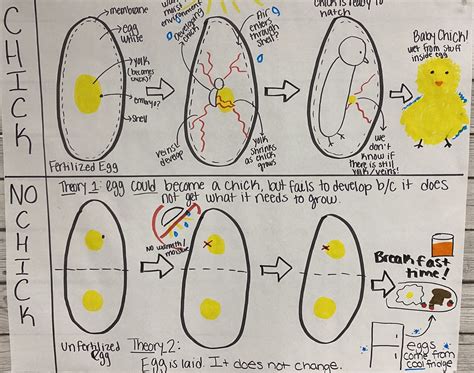 CHICK
membrane
egg
white
yolk
(becomes
chick)?
embryo?
shell
Fertilized Egg
environment
Developing
chick
veins?
develop
Air
enters
through
shell?
yolk
shrinks
as chick
grows
chick is ready to
hatch
we
don't
know if
there is still
yolk/veins!
Baby Chick!
wet from stuff
inside egg
NO CHICK
Theory 1: egg could become a chick, but fails to develop b/c it does
not get what it needs to grow.
No warmth/
moisture
Unfertilized
egg
Theory 2:
Egg is laid. It does not change.
Breakfast
time!
eggs
come from
cool fridge